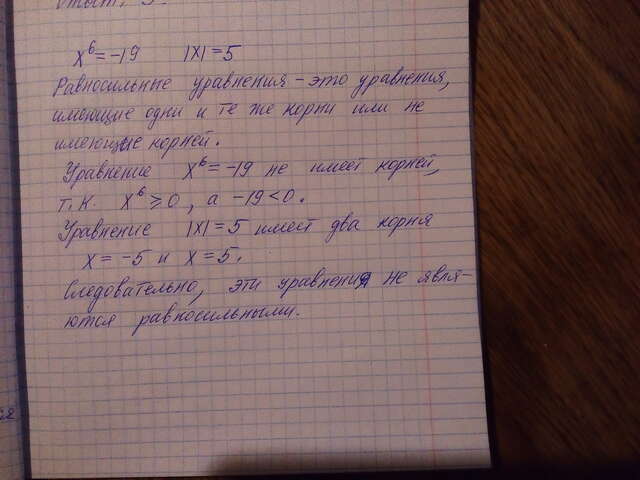 Ответ: 3.
x⁶ = -19 |x| = 5
Равносильные уравнения - это уравнения,
имеющие одни и те же корни или не
имеющие корней.
Уравнение x⁶ = -19 не имеет корней,
т.к. x⁶ ≥ 0, а -19 < 0.
Уравнение |x| = 5 имеет два корня
x = -5 и x = 5.
Следовательно, эти уравнения не явля-
ются равносильными.